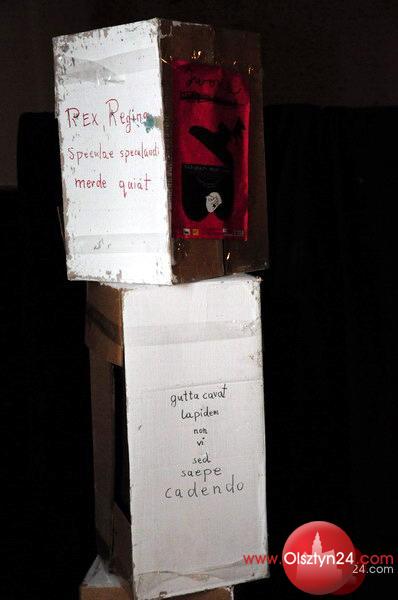 REX Regina
Speculae speculandi
merde quiat
gutta cavat
lapidem
non
vi
sed
saepe
cadendo
www.Olsztyn24.com
24.com